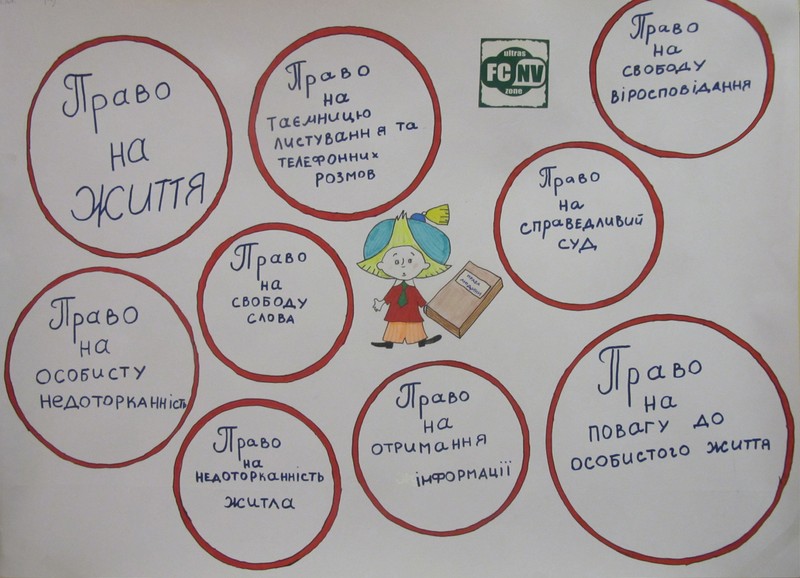 Право
на
життя
Право
на
таємницю
листування та
телефонних
розмов
ultras
FC NV
zone
Право
на
свободу
віросповідання
Право
на
справедливий
суд
Право
на
свободу
слова
Право
на
особисту
недоторканність
Право
на
недоторканність
житла
Право
на
отримання
інформації
Право
на
повагу до
особистого життя